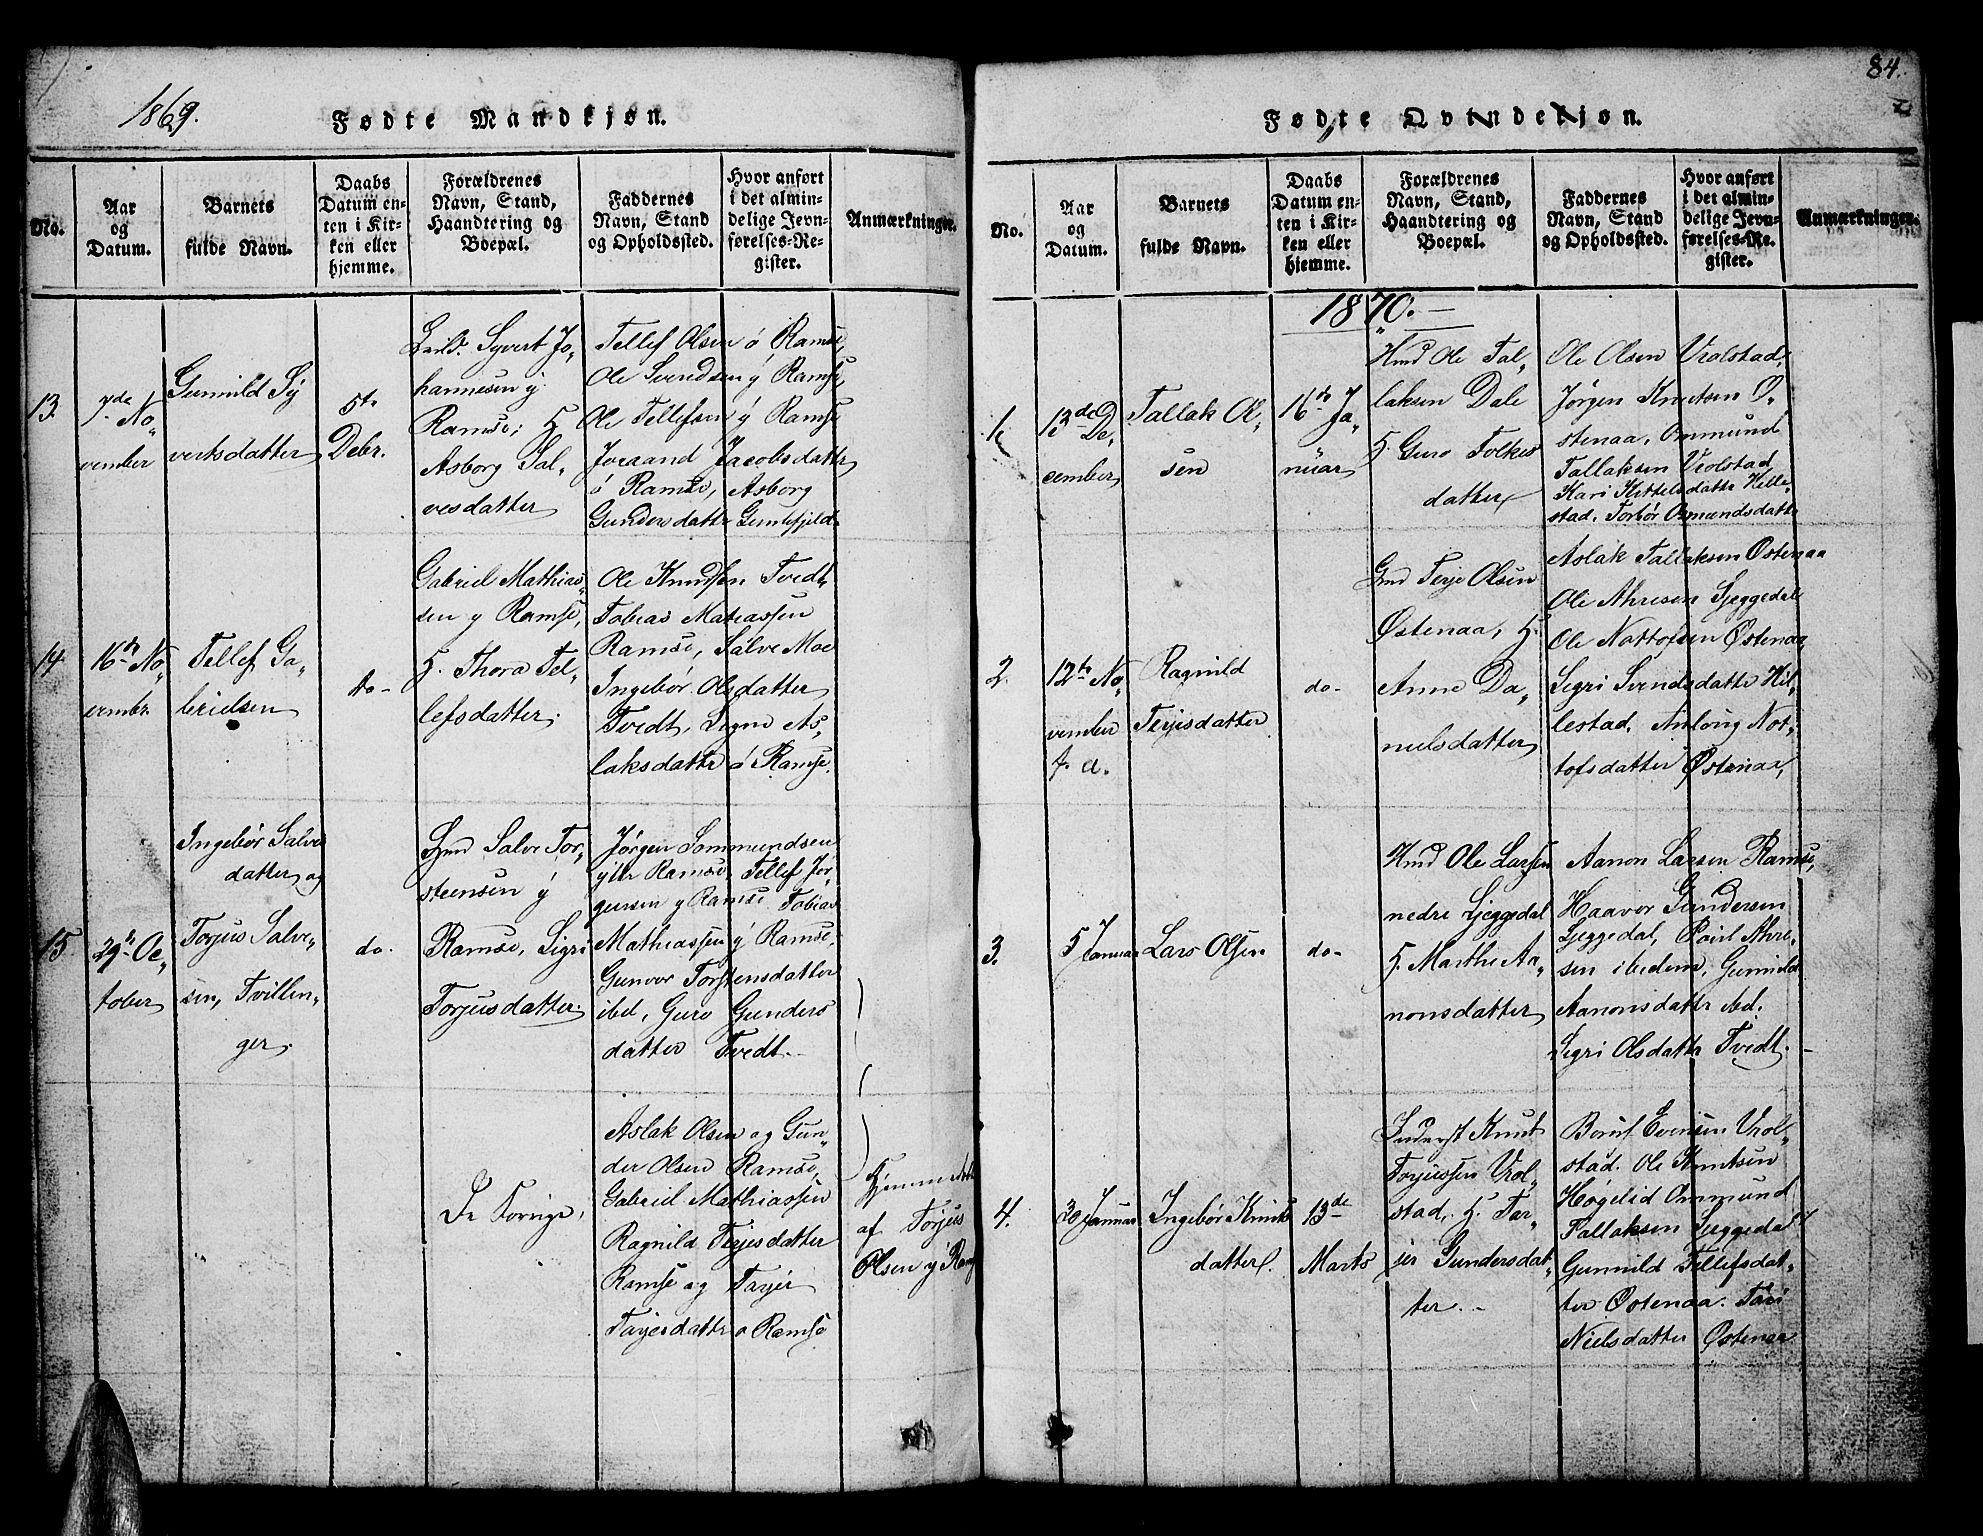 1869.
Fødte Mandkjøn.
No.
Aar
og
Datum.
Barnets
fulde Navn.
Daabs
Datum en-
ten i Kir-
ken eller
hjemme.
Forældrenes
Navn, Stand,
Haandtering og
Boepæl.
Faddernes
Navn, Stand
og Opholdssted.
Hvor anført
i det almin-
delige Jevn-
førelses-Re-
gister.
Anmærkninger.
13.
7de No„
vember
Gunnild Sy
vertsdatter
5te
Debr.
Syvert Jo„
hannesen y.
Ramse; H.
Asborg Sal„
vesdatter
Tellef Olsen ø Ramse,
Ole Svendsen y Ramse,
Ole Tellefsen y Ramse
Joraand Jacobsdattr
ø Ramse, Asborg
Gundersdattr
14.
16de No„
vembr.
Tellef Ga„
brielsen
do-
Gabriel Mathias„
sen y Ramse,
H. Thora Tel„
lefsdatter.
Ole Knudsen Tvedt,
Tobias Matiassen
Ramse, Salve Moe
Ingebør Olsdatter
Tvedt, Signe As„
laksdattr ø Ramse.
15.
29de Oc„
tober
Ingebør Salves
datter og
Torjus Salve„
sen, Tvillin„
ger.
do.
Gmd Salve Tor„
steensen y
Ramse, Sigri
Torjusdatter.
Jørgen Sommundsen
yttr Ramse, Tellef Jør„
gensen y Ramse Tobias
Mathiassen y Ramse,
Gunvor Torstensdatter
ibd, Guro Gunders
datter Tvedt.
De Forrige,
Aslak Olsen og Gun„
der Olsen Ramse,
Gabriel Mathiassen
Ragnild Terjesdatter
Ramse og Tarjer
Tarjesdattr ø Ramse
af Torjus
Olsen y Rams
84.
Fødte Qvindekjøn.
No.
Aar
og
Datum.
Barnets
fulde Navn.
Daabs
Datum en-
ten i Kir-
ken eller
hjemme.
Forældrenes
Navn, Stand,
Haandtering og
Boepæl.
Faddernes
Navn, Stand
og Opholdssted.
Hvor anført
i det almin-
delige Jevn-
førelses-Re-
gister.
Anmærkninger.
1870.
1.
13de De„
cember
Tallak Ol„
sen
16de Ja„
nuar
Hmd Ole Tal„
laksen Dale
H. Guro Folkes
datter
Ole Olsen Vrolstad,
Jørgen Knutsen Ø„
stenaa, Ommund
Tallaksen Vrolstad
Kari Kittelsdattr Hille„
stad. Torbør Osmundsdattr
2.
12te No„
vember
f. a.
Ragnild
Terjesdatter
do-
Gmd Terje Olsen
Østenaa, H.
Anne Da„
nielsdatter
Aslak Tallaksen Østenaa
Ole Ahresen Sjeggedal
Ole Nottofsen Østenaa,
Sigri Svendsdatte Hil„
lestad, Anlaug Not„
tofsdatter Østenaa,
3.
5 Januar
Lars Olsen
do-
Hmd Ole Larssen
nedre Sjeggedal
H. Marthe Aa„
nonsdatter
Aanon Larsen Ramse,
Haavor Gundersen
Sjeggedal, Poul Ahre„
sen ibidem, Gunnild
Aanonsdattr ibd.
Sigri Olsdattr Tvedt.
4.
30 Januar
Ingebør Knuts
datter.
13de
Marts
Inderst Knut
Torjussen Vrol„
stad, H. Tar„
jer Gundersdat„
ter.
Beruf Evensen Vrol„
stad. Ole Knutsen
Høgelid Ommund
Tallaksen Sjeggedal
Gunnild Tellefsdat„
ter Østenaa. Tari
Nielsdatter Østenaa